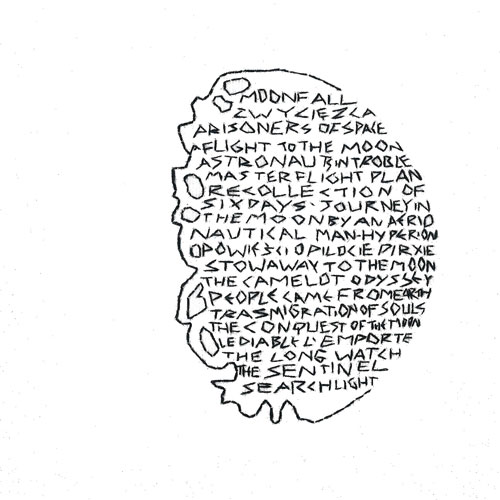 MOONFALL
ZWYCIEZCA
PRISONERS OF SPACE
A FLIGHT TO THE MOON
ASTRONAUTS IN TROBLE
MASTER FLIGHT PLAN
RECOLLECTION OF
SIX DAYS · JOURNEY IN
THE MOON BY AN AERIO
NAUTICAL MAN·HYPERION
OPOWIEŚCI O PILOCIE PIRXIE
STOWAWAY TO THE MOON
THE CAMELOT ODYSSEY
PEOPLE CAME FROM EARTH
TRASMIGRATION OF SOULS
THE CONQUEST OF THE MOON
LE DIABLE L'EMPORTE
THE LONG WATCH
THE SENTINEL
SEARCHLIGHT